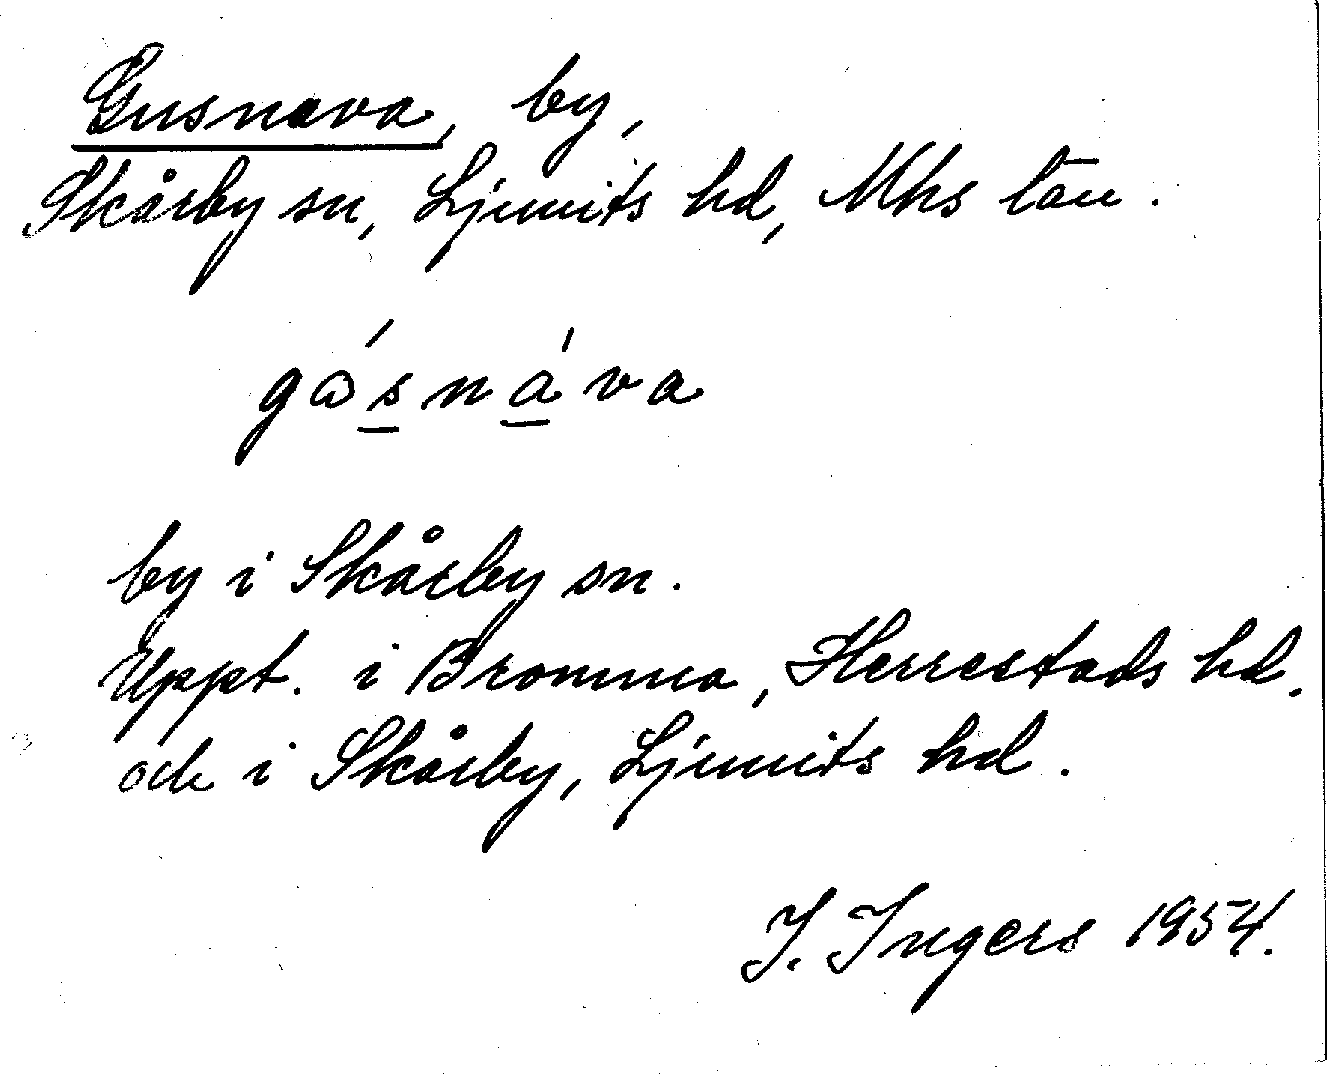 Gusnava, by,
Skårby sn, Ljunits hd, Mhs län.
gásnáva
by i Skårby sn.
Uppt. i Bromma, Herrestads hd.
och i Skårby, Ljunits hd.
I. Ingers 1954.